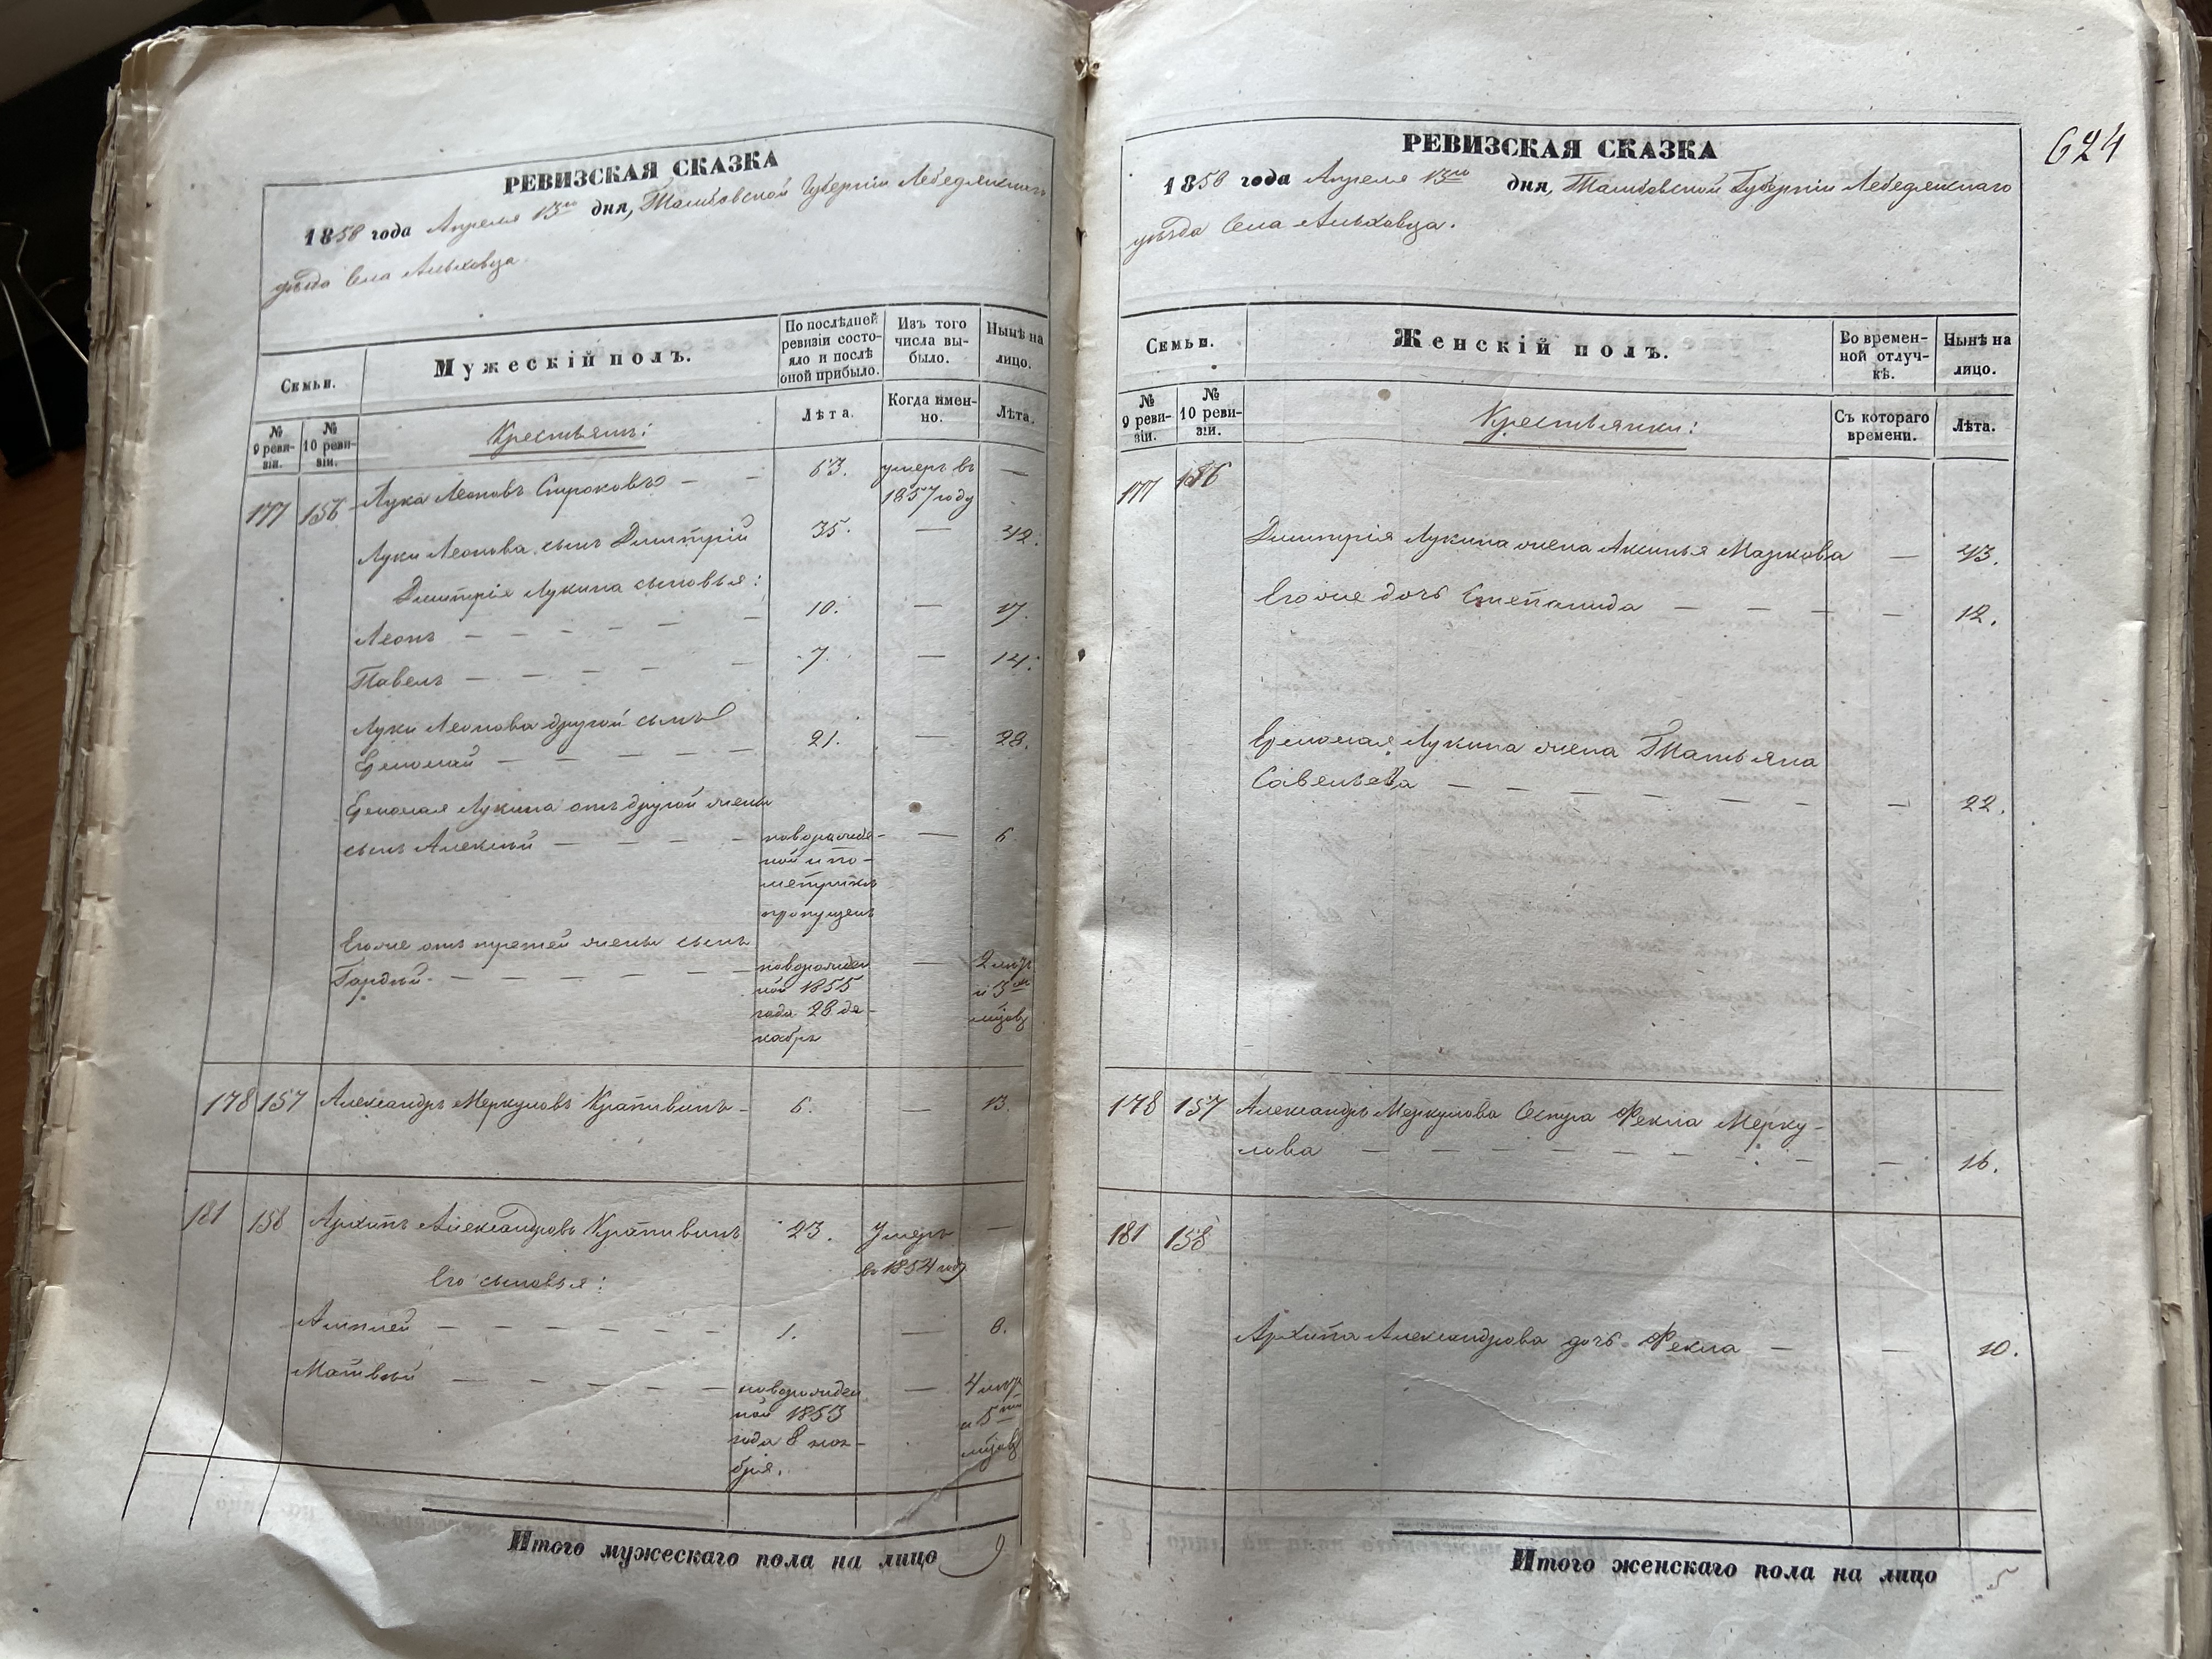 РЕВИЗСКАЯ СКАЗКА
1858 года Апреля 13го дня, Тамбовской Губерніи Лебедянскаго
уѣзда Села
Семьи.
Мужескій полъ.
По послѣдней ревизіи состояло и послѣ оной прибыло.
Изъ того числа выбыло.
Нынѣ на лицо.
№ 9 ревизіи.
№ 10 ревизіи.
Лѣта.
Когда именно.
Лѣта.
Крестьянъ:
177 156 Лука Леоновъ — — 63. умеръ въ —
1857 году
Луки Леонова сынъ Дмитрій 35. — 42.
Дмитрія Лукина сыновья:
Леонъ — — — — — — 10. — 17.
Павелъ — — — — 7. — 14.
Луки Леонова другой сынъ
Ермолай — — — — — 21. — 28.
Ермолая Лукина отъ другой жены
сынъ Алексѣй — — — — новорожде- — 6.
ной и по
метрикѣ
пропущенъ
Его же отъ третей жены сынъ
Гордѣй — — — — — — новорожден — 2 лѣтъ
ной 1855 и 3хъ
года 28 де-
кабря
178 157 Александръ Меркуловъ Крапивинъ — 6. — 13.
181 158 Архипъ Александровъ Крапивинъ 23. Умеръ —
въ 1854 году
Его сыновья:
— — — — — — 1. — 8.
Матвѣй — — — — — новорожден — 4 лѣтъ
ной 1853 и 5ти
года 8 ноя-
бря.
Итого мужескаго пола на лицо 9
624
РЕВИЗСКАЯ СКАЗКА
1858 года Апреля 13го дня, Тамбовской Губерніи Лебедянскаго
уѣзда Села
Семьи.
Женскій полъ.
Во временной отлучкѣ.
Нынѣ на лицо.
№ 9 ревизіи.
№ 10 ревизіи.
Съ котораго времени.
Лѣта.
Крестьянки:
177 156
Дмитрія Лукина жена Аксинья Маркова — 43.
Его же дочь Степанида — — — — — 12.
Ермолая Лукина жена Татьяна
Савельева — — — — — — — — 22.
178 157 Александръ Меркулова Сестра Фекла Мерку-
лова — — — — — — — — 16.
181 158
Архипа Александрова дочь Фекла — — 10.
Итого женскаго пола на лицо 5